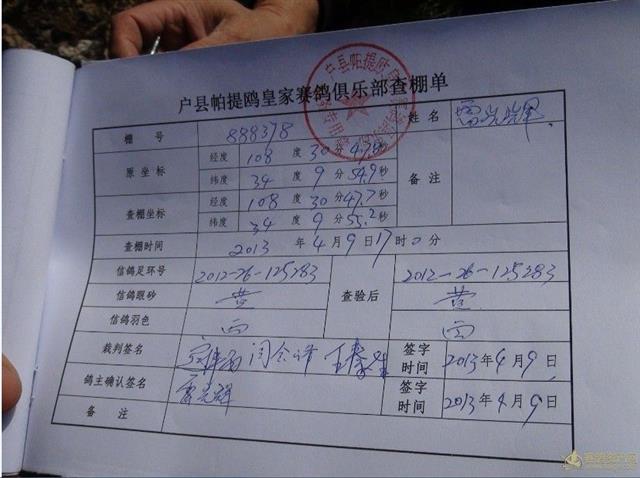 户县帕提鸥皇家赛鸽俱乐部查棚单
棚 号 888378 姓 名
原 坐 标 经度 108 度 30 分 47.8 秒 备 注
纬度 34 度 9 分 54.9 秒
查棚坐标 经度 108 度 30 分 47.7 秒
纬度 34 度 9 分 55.2 秒
查棚时间 2013 年 4 月 9 日 17 时 0 分
信鸽足环号 2012-26-125283 查验后 2012-26-125283
信鸽眼砂 黄 黄
信鸽羽色
裁判签名 签字时间 2013年4月9日
鸽主确认签名 签字时间 2013年4月9日
备 注